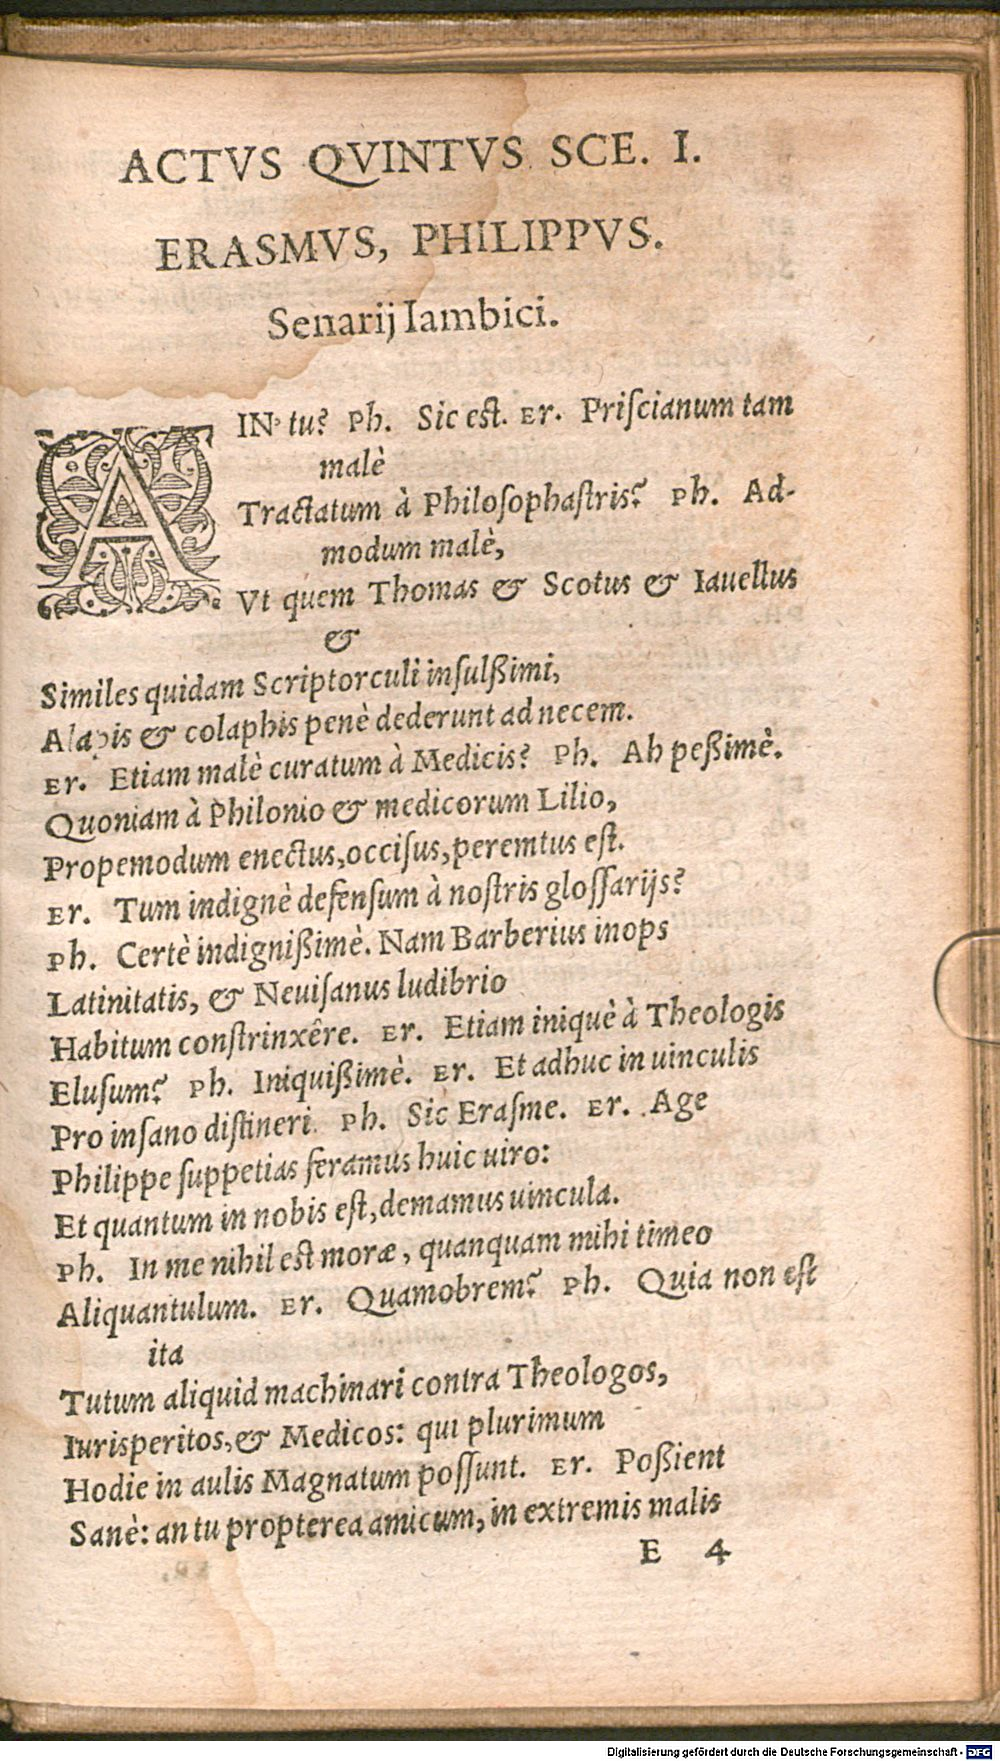 ACTVS QVINTVS SCE. I.
ERASMVS, PHILIPPVS.
Senarij Iambici.
AIN' tu? Ph. Sic eſt. Er. Priſcianum tam
malè
Tractatum à Philoſophaſtris? Ph. Ad-
modum malè,
Vt quem Thomas & Scotus & Iauellus
&
Similes quidam Scriptorculi inſulßimi,
Alapis & colaphis penè dederunt ad necem.
Er. Etiam malè curatum à Medicis? Ph. Ah peßimè.
Quoniam à Philonio & medicorum Lilio,
Propemodum enectus, occiſus, peremtus eſt.
Er. Tum indignè defenſum à noſtris gloſſarijs?
Ph. Certè indignißimè. Nam Barberius inops
Latinitatis, & Neuiſanus ludibrio
Habitum conſtrinxêre. Er. Etiam iniquè à Theologis
Eluſum? Ph. Iniquißimè. Er. Et adhuc in uinculis
Pro inſano diſtineri. Ph. Sic Eraſme. Er. Age
Philippe ſuppetias feramus huic uiro:
Et quantum in nobis eſt, demamus uincula.
Ph. In me nihil eſt moræ, quanquam mihi timeo
Aliquantulum. Er. Quamobrem? Ph. Quia non eſt
ita
Tutum aliquid machinari contra Theologos,
Iurisperitos, & Medicos: qui plurimum
Hodie in aulis Magnatum poſſunt. Er. Poßient
Sanè: an tu propterea amicum, in extremis malis
E 4
Digitalisierung gefördert durch die Deutsche Forschungsgemeinschaft - DFG